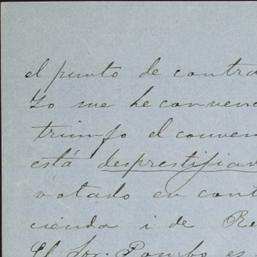 el punto de contra
Yo me he convenc
triunfo el conven
está desprestijiad
votado en cont
cienda i de Re
El Sr. Pombo es